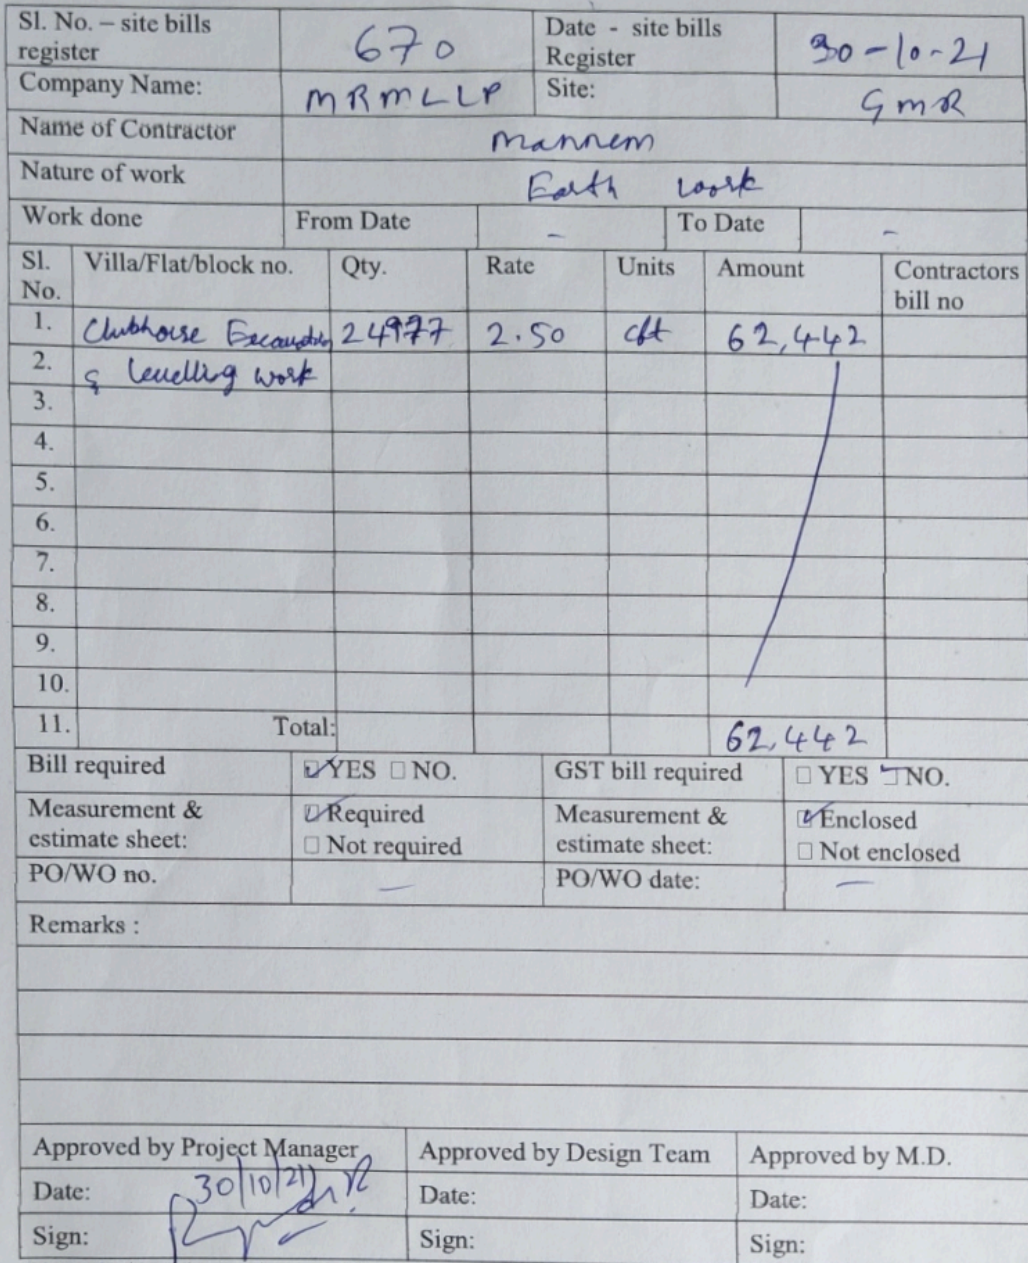 Sl. No. – site bills register 670 Date - site bills Register 30-10-21
Company Name: MRMLLP Site: GMR
Name of Contractor Mannem
Nature of work Earth work
Work done From Date - To Date -
Sl. No. Villa/Flat/block no. Qty. Rate Units Amount Contractors bill no
1. Clubhouse Excavation 24977 2.50 cft 62,442
2. & levelling work
3.
4.
5.
6.
7.
8.
9.
10.
11. Total: 62,442
Bill required ☑ YES ☐ NO. GST bill required ☐ YES ☑ NO.
Measurement & estimate sheet: ☑ Required ☐ Not required Measurement & estimate sheet: ☑ Enclosed ☐ Not enclosed
PO/WO no. - PO/WO date: -
Remarks :
Approved by Project Manager Approved by Design Team Approved by M.D.
Date: 30/10/21 Date: Date:
Sign: Sign: Sign: